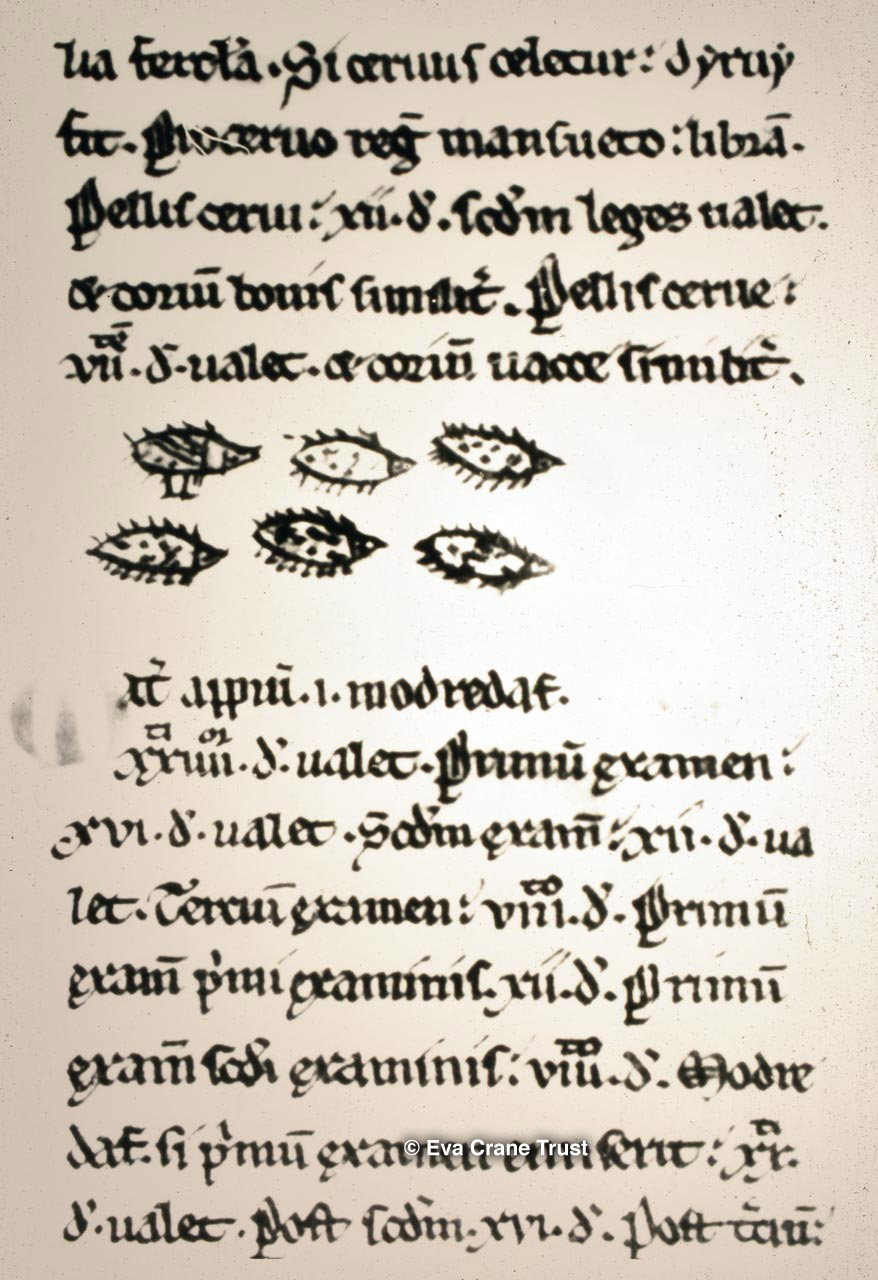 lia fercl̉a. Si ceruus celetur: dyruy
fit. Pro ceruo reḡ mansueto: librā.
Pellis cerui: xii. đ. scđm leges ualet.
& coriū bouis similit̉. Pellis cerue:
vii. đ. ualet. & coriū uacce similit̉.
apiū. i. modredaf.
xxiiii. đ. ualet. Primū examen:
xvi. đ. ualet. Scđm exam̄: xii. đ. ua
let. Terciū examen: viii. đ. Primū
exam̄ p̉mi examinis. xii. đ. Primū
exam̄ scđi examinis: viii. đ. Modre
daf. si p̉mū serit: xx.
đ. ualet. Post scđm. xvi. đ. Post t̉ciū:
© Eva Crane Trust